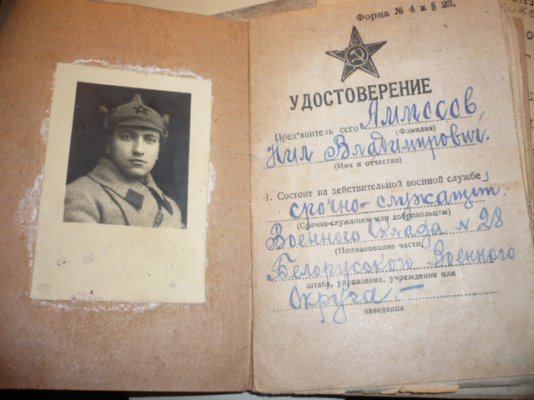 Форма № 4 к § 23.
УДОСТОВЕРЕНИЕ
Пред'явитель сего Аммосов,
(Фамилия)
Нил Владимирович.
(Имя и отчество)
1. Состоит на действительной военной службе
срочно-служащим
(Срочно-служащим или добровольцем)
Военного склада № 28
(Наименование части,
Белорусского Военного
штаба, управления, учреждения или
Округа. —
заведения